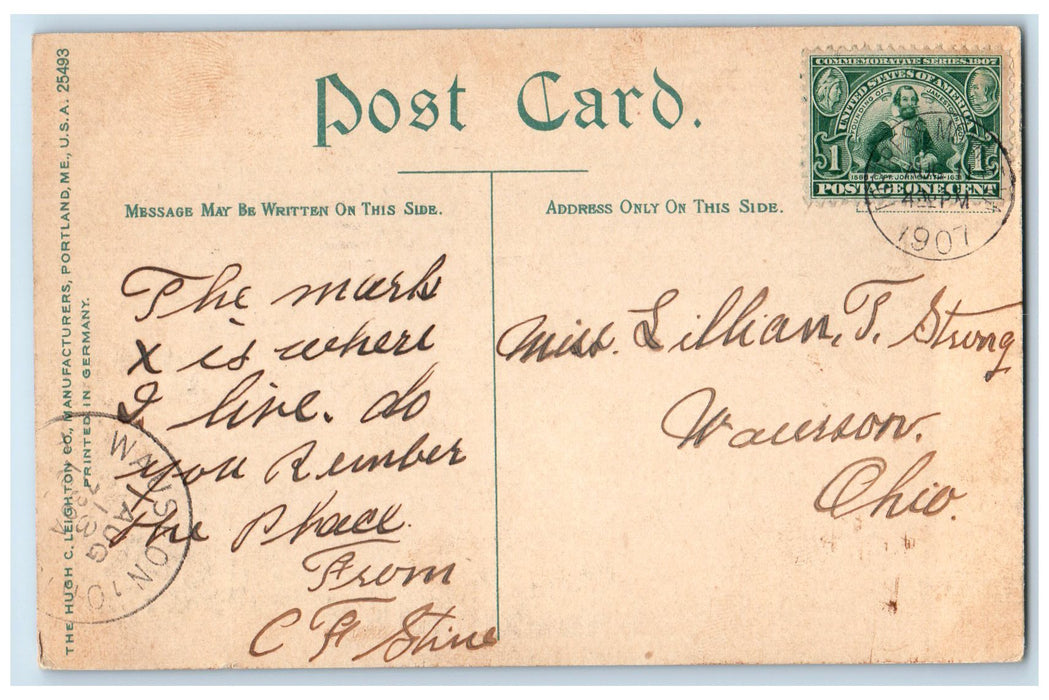 THE HUGH C. LEIGHTON CO., MANUFACTURERS, PORTLAND, ME., U.S.A. 25493
PRINTED IN GERMANY.
Post Card.
MESSAGE MAY BE WRITTEN ON THIS SIDE.
The mark
X is where
I live. do
you Rember
the Place.
From
C F Stine
ADDRESS ONLY ON THIS SIDE.
COMMEMORATIVE SERIES 1907
UNITED STATES OF AMERICA
FOUNDING OF JAMESTOWN
1580 · CAPT. JOHN SMITH · 1631
1 1
POSTAGE ONE CENT
PM
1907
Miss. Lillian, T. Strong
Wauson.
Ohio.
WAUSEON
AUG
13